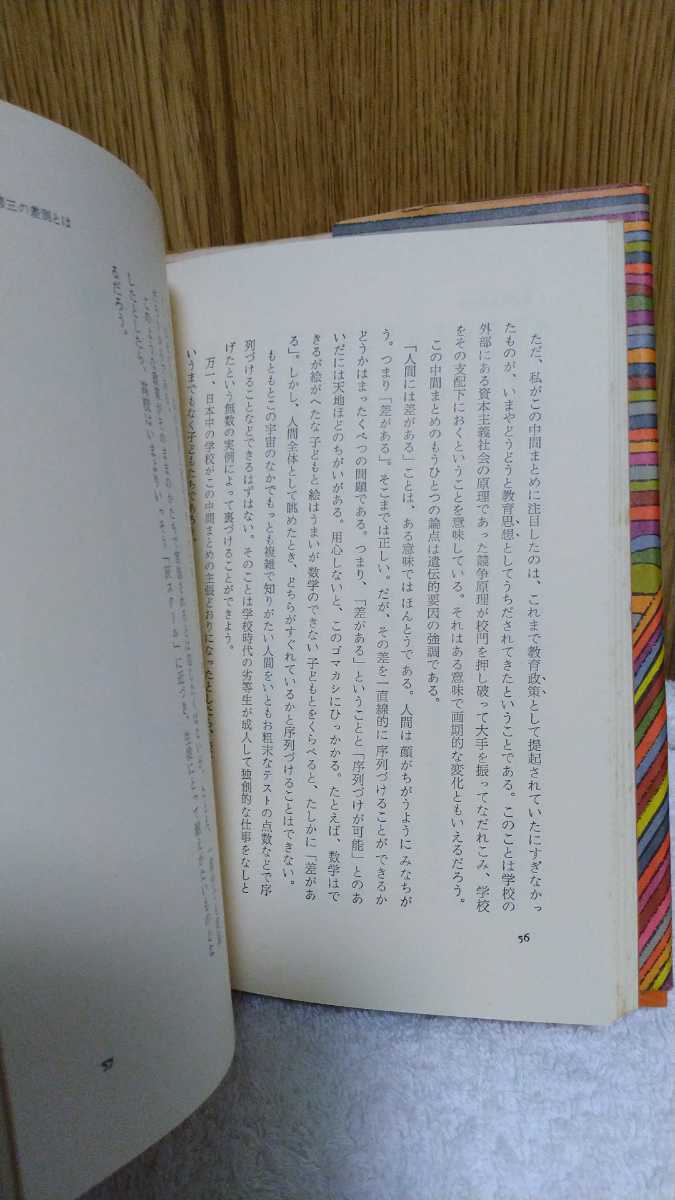 ただ、私がこの中間まとめに注目したのは、これまで教育政策として提起されていたにすぎなかっ
たものが、いまやどうどうと教育思想としてうちだされてきたということである。このことは学校の
外部にある資本主義社会の原理であった競争原理が校門を押し破って大手を振ってなだれこみ、学校
をその支配下におくということを意味している。それはある意味で画期的な変化ともいえるだろう。
この中間まとめのもうひとつの論点は遺伝的要因の強調である。
「人間には差がある」ことは、ある意味ではほんとうである。人間は顔がちがうようにみなちが
う。つまり「差がある」。そこまでは正しい。だが、その差を一直線的に序列づけることができるか
どうかはまったくべつの問題である。つまり、「差がある」ということと「序列づけが可能」とのあ
いだには天地ほどのちがいがある。用心しないと、このゴマカシにひっかかる。たとえば、数学はで
きるが絵がへたな子どもと絵はうまいが数学のできない子どもとをくらべると、たしかに「差があ
る」。しかし、人間全体として眺めたとき、どちらがすぐれているかと序列づけることはできない。
もともとこの宇宙のなかでもっとも複雑で知りがたい人間をいともお粗末なテストの点数などで序
列づけることなどできるはずはない。そのことは学校時代の劣等生が成人して独創的な仕事をなしと
げたという無数の実例によって裏づけることができよう。
万一、日本中の学校がこの中間まとめの主張どおりになったとしたら、
いうまでもなく子どもたちである。
56
の差別とは
したとしたら、
るだろう。
57